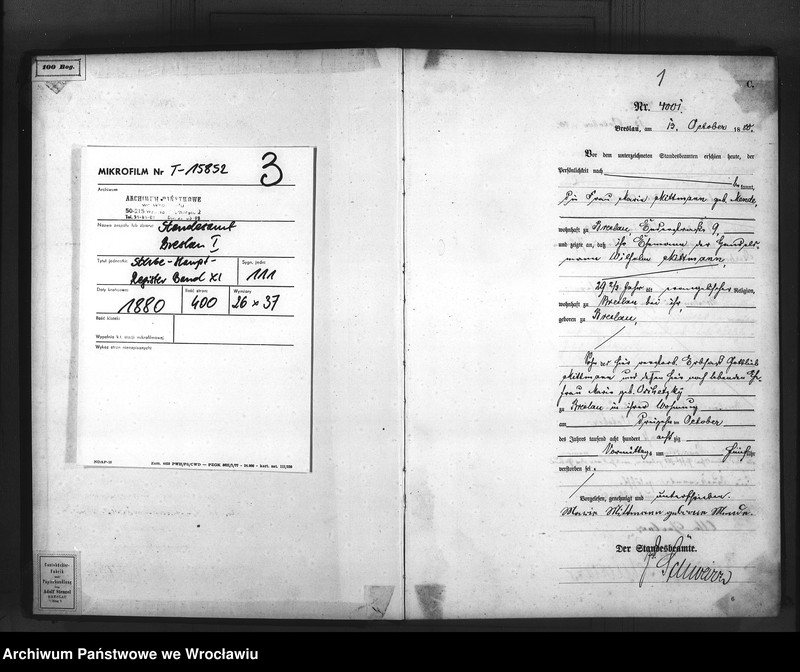 100 Bog.
MIKROFILM Nr T-15852 3
Archiwum
ARCHIWUM PAŃSTWOWE
Nazwa zespołu lub zbioru: Standesamt
Breslau I
Tytuł jednostki: Sterbe-Haupt-
Register Band XI
Sygn. jedn.
111
Daty krańcowe:
1880
Ilość stron:
400
Wymiary
26 x 37
Ilość klatek:
Wypełnia k.t. stacji mikrofilmowej
Wykaz stron nienapisanych:
Adolf Stenzel
1
C.
Nr. 4001
Breslau, am 13. October 1880.
Vor dem unterzeichneten Standesbeamten erschien heute, der
Persönlichkeit nach
be kannt,
die Frau Marie Mittmann geb. Mende,
wohnhaft zu Breslau, 9,
und zeigte an, daß ihr Ehemann der Handels-
mann Wilhelm Mittmann,
29 2/3 Jahr alt, evangelischer Religion,
wohnhaft zu Breslau bei ihr,
geboren zu Breslau,
Sohn des hier verstorb. Gottlieb
Mittmann und dessen hier noch lebenden Ehe-
frau Marie geb.
zu Breslau in ihrer Wohnung
am dreizehnten October
des Jahres tausend acht hundert achtzig
Vormittags um fünf Uhr
verstorben sei.
Vorgelesen, genehmigt und unterschrieben.
Marie Mittmann geborne Mende.
Der Standesbeamte.
6
Archiwum Państwowe we Wrocławiu